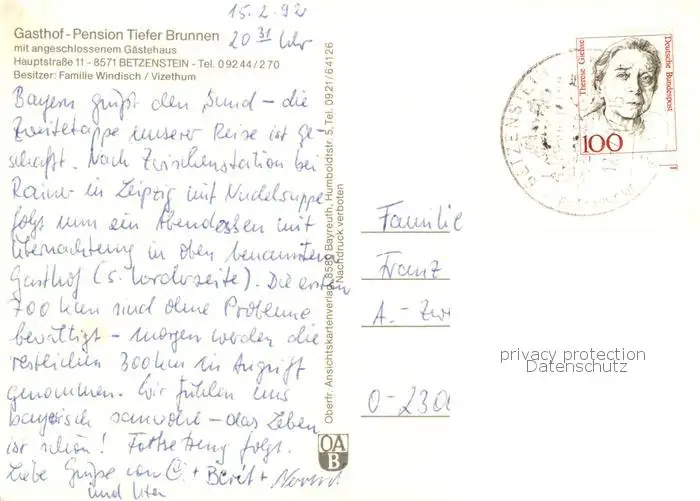 15.2.92
20 31 Uhr
Gasthof-Pension Tiefer Brunnen
mit angeschlossenem Gästehaus
Hauptstraße 11 - 8571 BETZENSTEIN - Tel. 09244/270
Besitzer: Familie Windisch / Vizethum
Bayern grüßt den Sund – die
Zweitetappe unserer Reise ist ge-
schafft. Nach Zwischenstation bei
Rainer in Leipzig mit Nudelsuppe
folgt nun ein Abendessen mit
Übernachtung in oben benanntem
Gasthof (s. Vorderseite). Die ersten
700 km sind ohne Probleme
bewältigt – morgen werden die
restlichen 300 km in Angriff
genommen. Wir fühlen uns
bayrisch sauwohl – das Leben
ist schön! Fortsetzung folgt.
Liebe Grüße von C. + Berit +
und Uta
Oberfr. Ansichtskartenverlag, 8580 Bayreuth, Humboldtstr. 5, Tel. 0921/64126
Nachdruck verboten
OA
B
Therese Giehse
Deutsche Bundespost
100
BETZENSTEIN
Familie
Franz
A.-Zw
O-230
privacy protection
Datenschutz